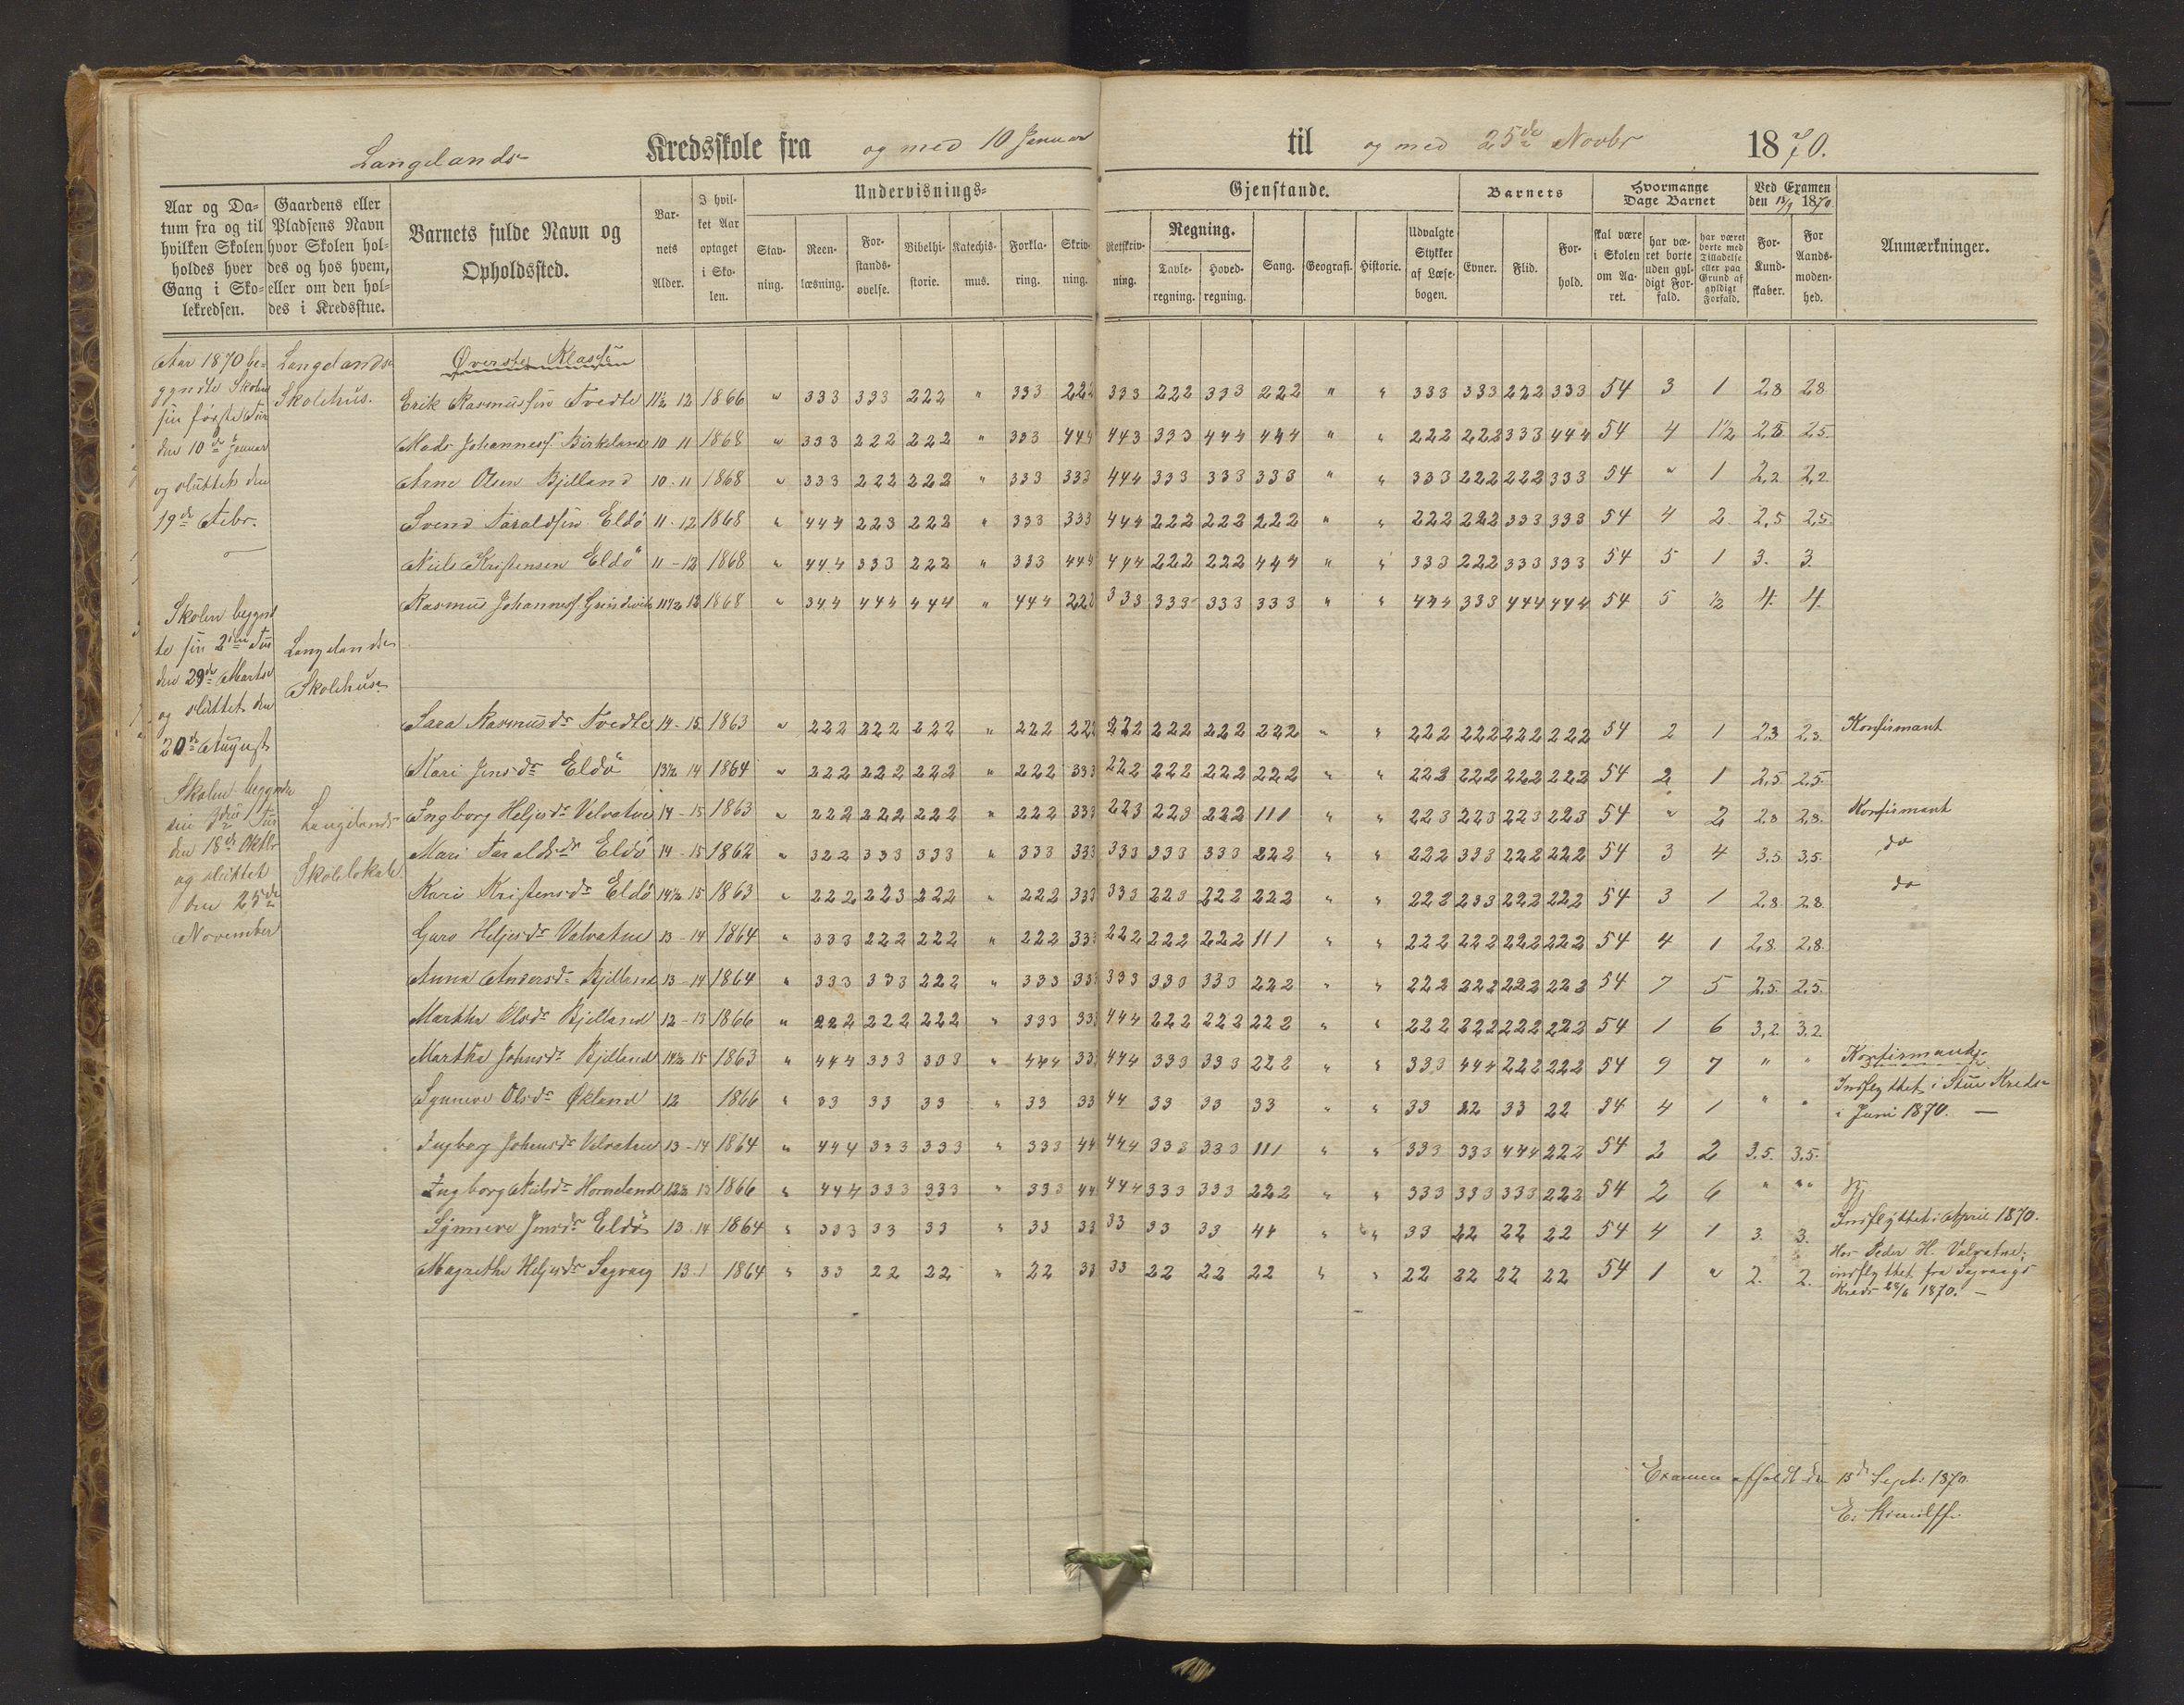 Langelands Kredsskole fra og med 10 Januar til og med 25de Novbr 1870.
Aar og Da=
tum fra og til
hvilken Skolen
holdes hver
Gang i Sko=
lekredsen.
Gaardens eller
Pladsens Navn
hvor Skolen hol=
des og hos hvem,
eller om den hol=
des i Kredsstue.
Barnets fulde Navn og
Opholdssted.
Bar-
nets
Alder.
I hvil-
ket Aar
optaget
i Sko-
len.
Undervisnings=
Gjenstande.
Stav-
ning.
Reen-
læsning.
For-
stands-
øvelse.
Bibelhi-
storie.
Katechis-
mus.
Forkla-
ring.
Skriv-
ning.
Retskriv-
ning.
Regning.
Tavle-
regning.
Hoved-
regning.
Sang.
Geografi.
Historie.
Udvalgte
Stykker
af Læse-
bogen.
Barnets
Evner.
Flid.
For-
hold.
Hvormange
Dage Barnet
skal være
i Skolen
om Aa-
ret.
har væ-
ret borte
uden gyl-
digt For-
fald.
har været
borte med
Tilladelse
eller paa
Grund af
gyldigt
Forfald.
Ved Examen
den 13/9 1870.
For-
Kund-
skaber.
For
Aands-
moden-
hed.
Anmærkninger.
Aar 1870 be=
gyndte Skolen
sin første Tur
den 10de Januar
og sluttet den
19de Febr.
Langelands
Skolehus.
Skolen begynd
te sin 2den Tur
den 29de Marts
og sluttet den
20de August
Langelands
Skolehus
Skolen begyndte
sin 3die Tur
den 18de Oktbr
og sluttet
den 25de
November
Langelands
Skolelokale
Øverste Klasse
Erik Rasmussen Tvedte 11½ 12 1866 " 333 333 222 " 333 222 333 222 333 222 " " 333 333 222 333 54 3 1 2,8 2,8
Mads Johannes. Birkeland 10 11 1868 " 333 222 222 " 333 444 443 333 444 444 " " 222 222 333 444 54 4 1½ 2,5 2,5.
Arne Olsen Bjelland 10-11 1868 " 333 222 222 " 333 333 444 333 333 333 " " 333 222 222 333 54 " 1 2,2 2,2
Svend Taraldsen Eldö 11-12 1868 " 444 223 222 " 333 333 444 222 222 222 " " 222 222 333 333 54 4 2 2,5 2,5.
Niels Kristensen Eldö 11-12 1868 " 444 333 222 " 333 444 444 222 222 444 " " 333 222 333 333 54 5 1 3. 3.
Rasmus Johannes. 11½ 12 1868 " 344 444 444 " 444 222 333 333 333 333 " " 444 333 444 444 54 5 ½ 4. 4.
Sara Rasmusdr Tvedte 14-15 1863 " 222 222 222 " 222 222 222 222 222 222 " " 222 222 222 222 54 2 1 2,3. 2,3. Konfirmant
Kari Jensdr Eldö 13½ 14 1864 " 222 222 222 " 222 333 222 222 222 222 " " 222 222 222 222 54 2 1 2,5. 2,5.
Ingborg Heljesdr Velvatne 14-15 1863 " 222 222 222 " 222 333 223 223 222 111 " " 223 223 223 223 54 " 2 2,8 2,8. Konfirmant
Mari Taraldsdr Eldö 14-15 1862 " 322 333 333 " 333 333 333 333 333 222 " " 222 333 222 222 54 3 4 3,5. 3,5. do
Kari Kristensdr Eldö 14½ 15 1863 " 222 223 222 " 222 333 333 223 222 222 " " 222 233 222 222 54 3 1 2,8. 2,8. do
Guro Heljesdr Valvatne 13-14 1864 " 333 222 222 " 222 333 222 222 222 111 " " 222 222 222 222 54 4 1 2,8. 2,8.
Anna Andersdr Bjelland 13-14 1864 " 333 333 222 " 333 333 333 333 333 222 " " 222 222 222 223 54 7 5 2,5. 2,5.
Martha Olsdr Bjelland 12-13 1866 " 222 222 222 " 333 333 444 222 222 222 " " 222 222 222 222 54 1 6 3,2. 3,2
Martha Johnsdr Bjelland 14½ 15 1863 " 444 333 303 " 444 33 444 333 333 222 " " 333 444 222 222 54 9 7 " " Konfirmant
Synneve Olsdr Økland 12 1866 " 33 33 33 " 33 33 44 33 33 33 " " 33 22 33 22 34 4 1 " " Indflyttet i Kreds
i Juni 1870. —
Ingborg Johansdr Velvatne 13-14 1864 " 444 333 333 " 333 44 444 333 333 111 " " 333 333 444 222 54 2 2 3,5. 3,5.
Ingborg Nielsdr Horneland 12½ 13 1866 " 444 333 333 " 333 44 444 333 333 222 " " 333 333 333 222 54 2 6 " "
Synneve Jensdr Eldö 13-14 1864 " 333 33 33 " 33 33 33 33 33 44 " " 33 22 22 22 54 4 1 3. 3. Indflyttet i April 1870.
Magrethe Heljesdr Sagvaag 13 1864 " 33 22 22 " 22 33 33 22 22 22 " " 22 22 22 22 54 1 " 2. 2. Hos Peder H. Valvatne,
indflyttet fra Sagvaags
Kreds 1870. —
Examen afholdt den 13de Sept: 1870.